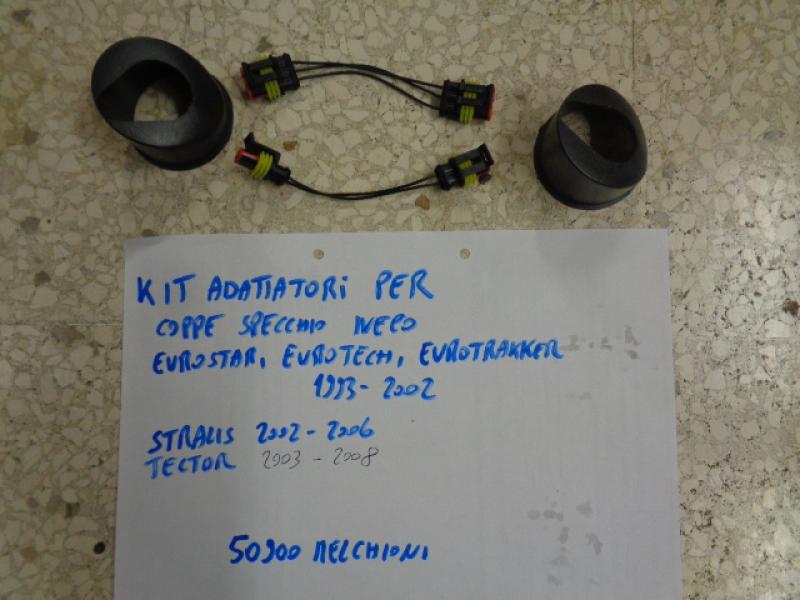 KIT ADATTATORI PER
COPPE SPECCHIO IVECO
EUROSTAR, EUROTECH, EUROTRAKKER
1993-2002
STRALIS 2002-2006
TECTOR 2003-2008
50900 MELCHIONI